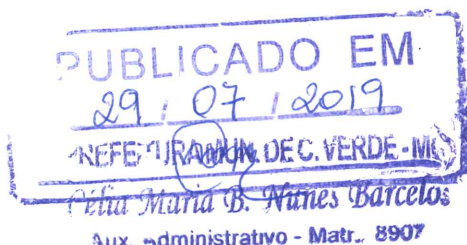 PUBLICADO EM
29 / 07 / 2019
PREFEITURA MUN. DE C. VERDE - MG
Célia Maria B. Nunes Barcelos
Aux. Administrativo - Matr.. 8907